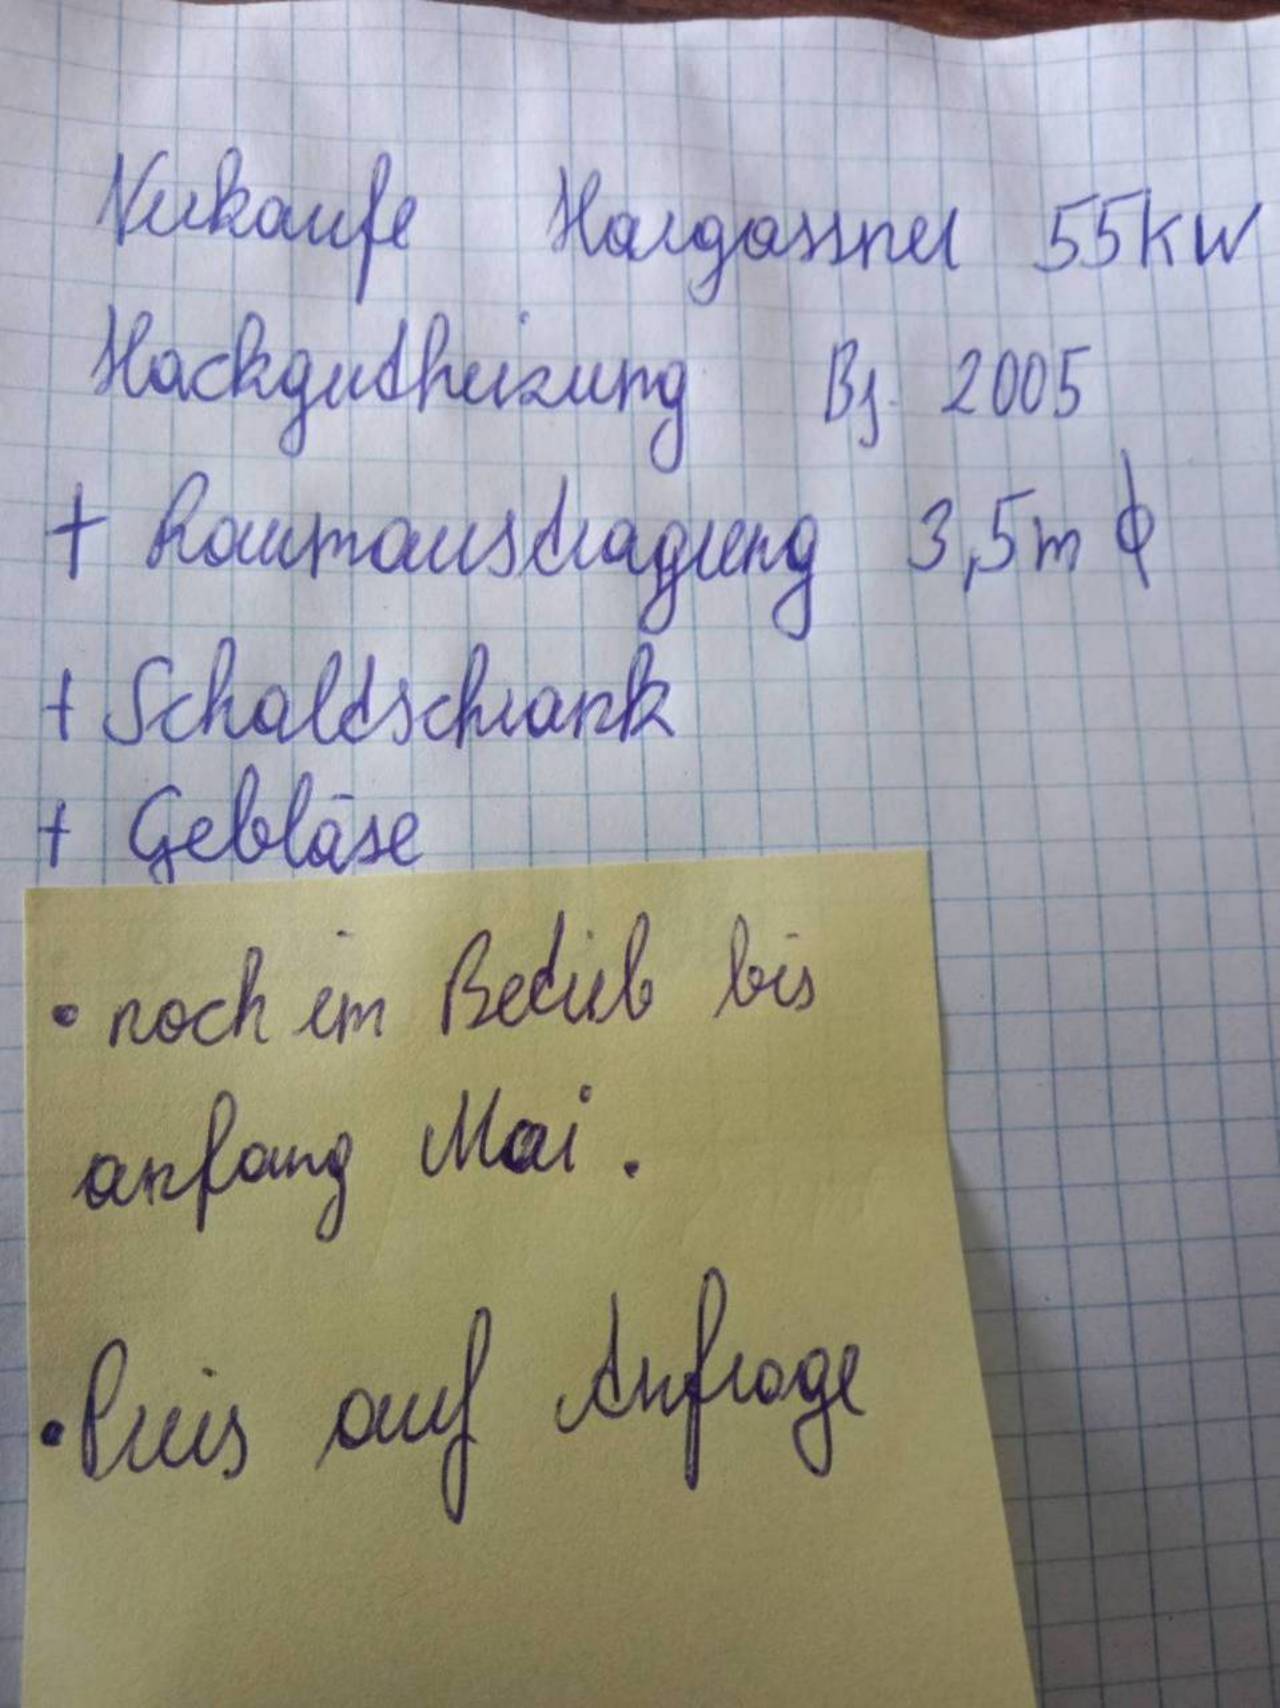 Verkaufe Hargassner 55kW
Hackgutheizung Bj. 2005
+ Raumaustragung 3,5m ϕ
+ Schaltschrank
+ Gebläse
• noch im Betrieb bis
anfang Mai.
• Preis auf Anfrage